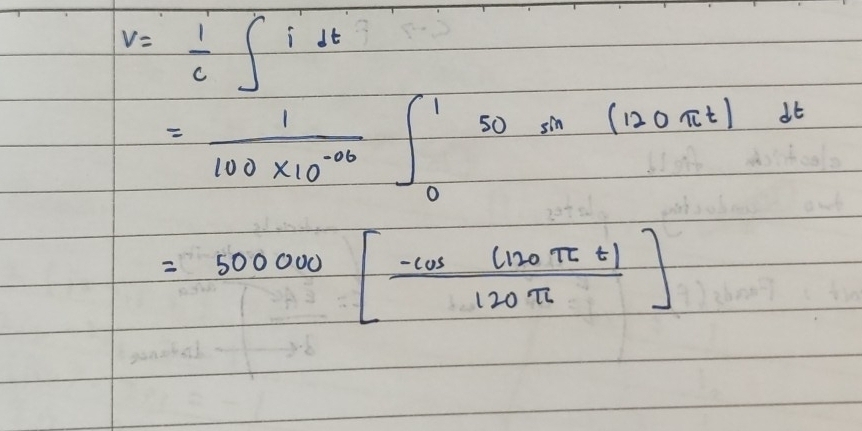 V= 1/c ∫ i dt
= 1/(100 ×10^-06) ∫_0^1 50 sin (120 πt) dt
= 500 000 [ -cos (120 π t) / 120 π ]